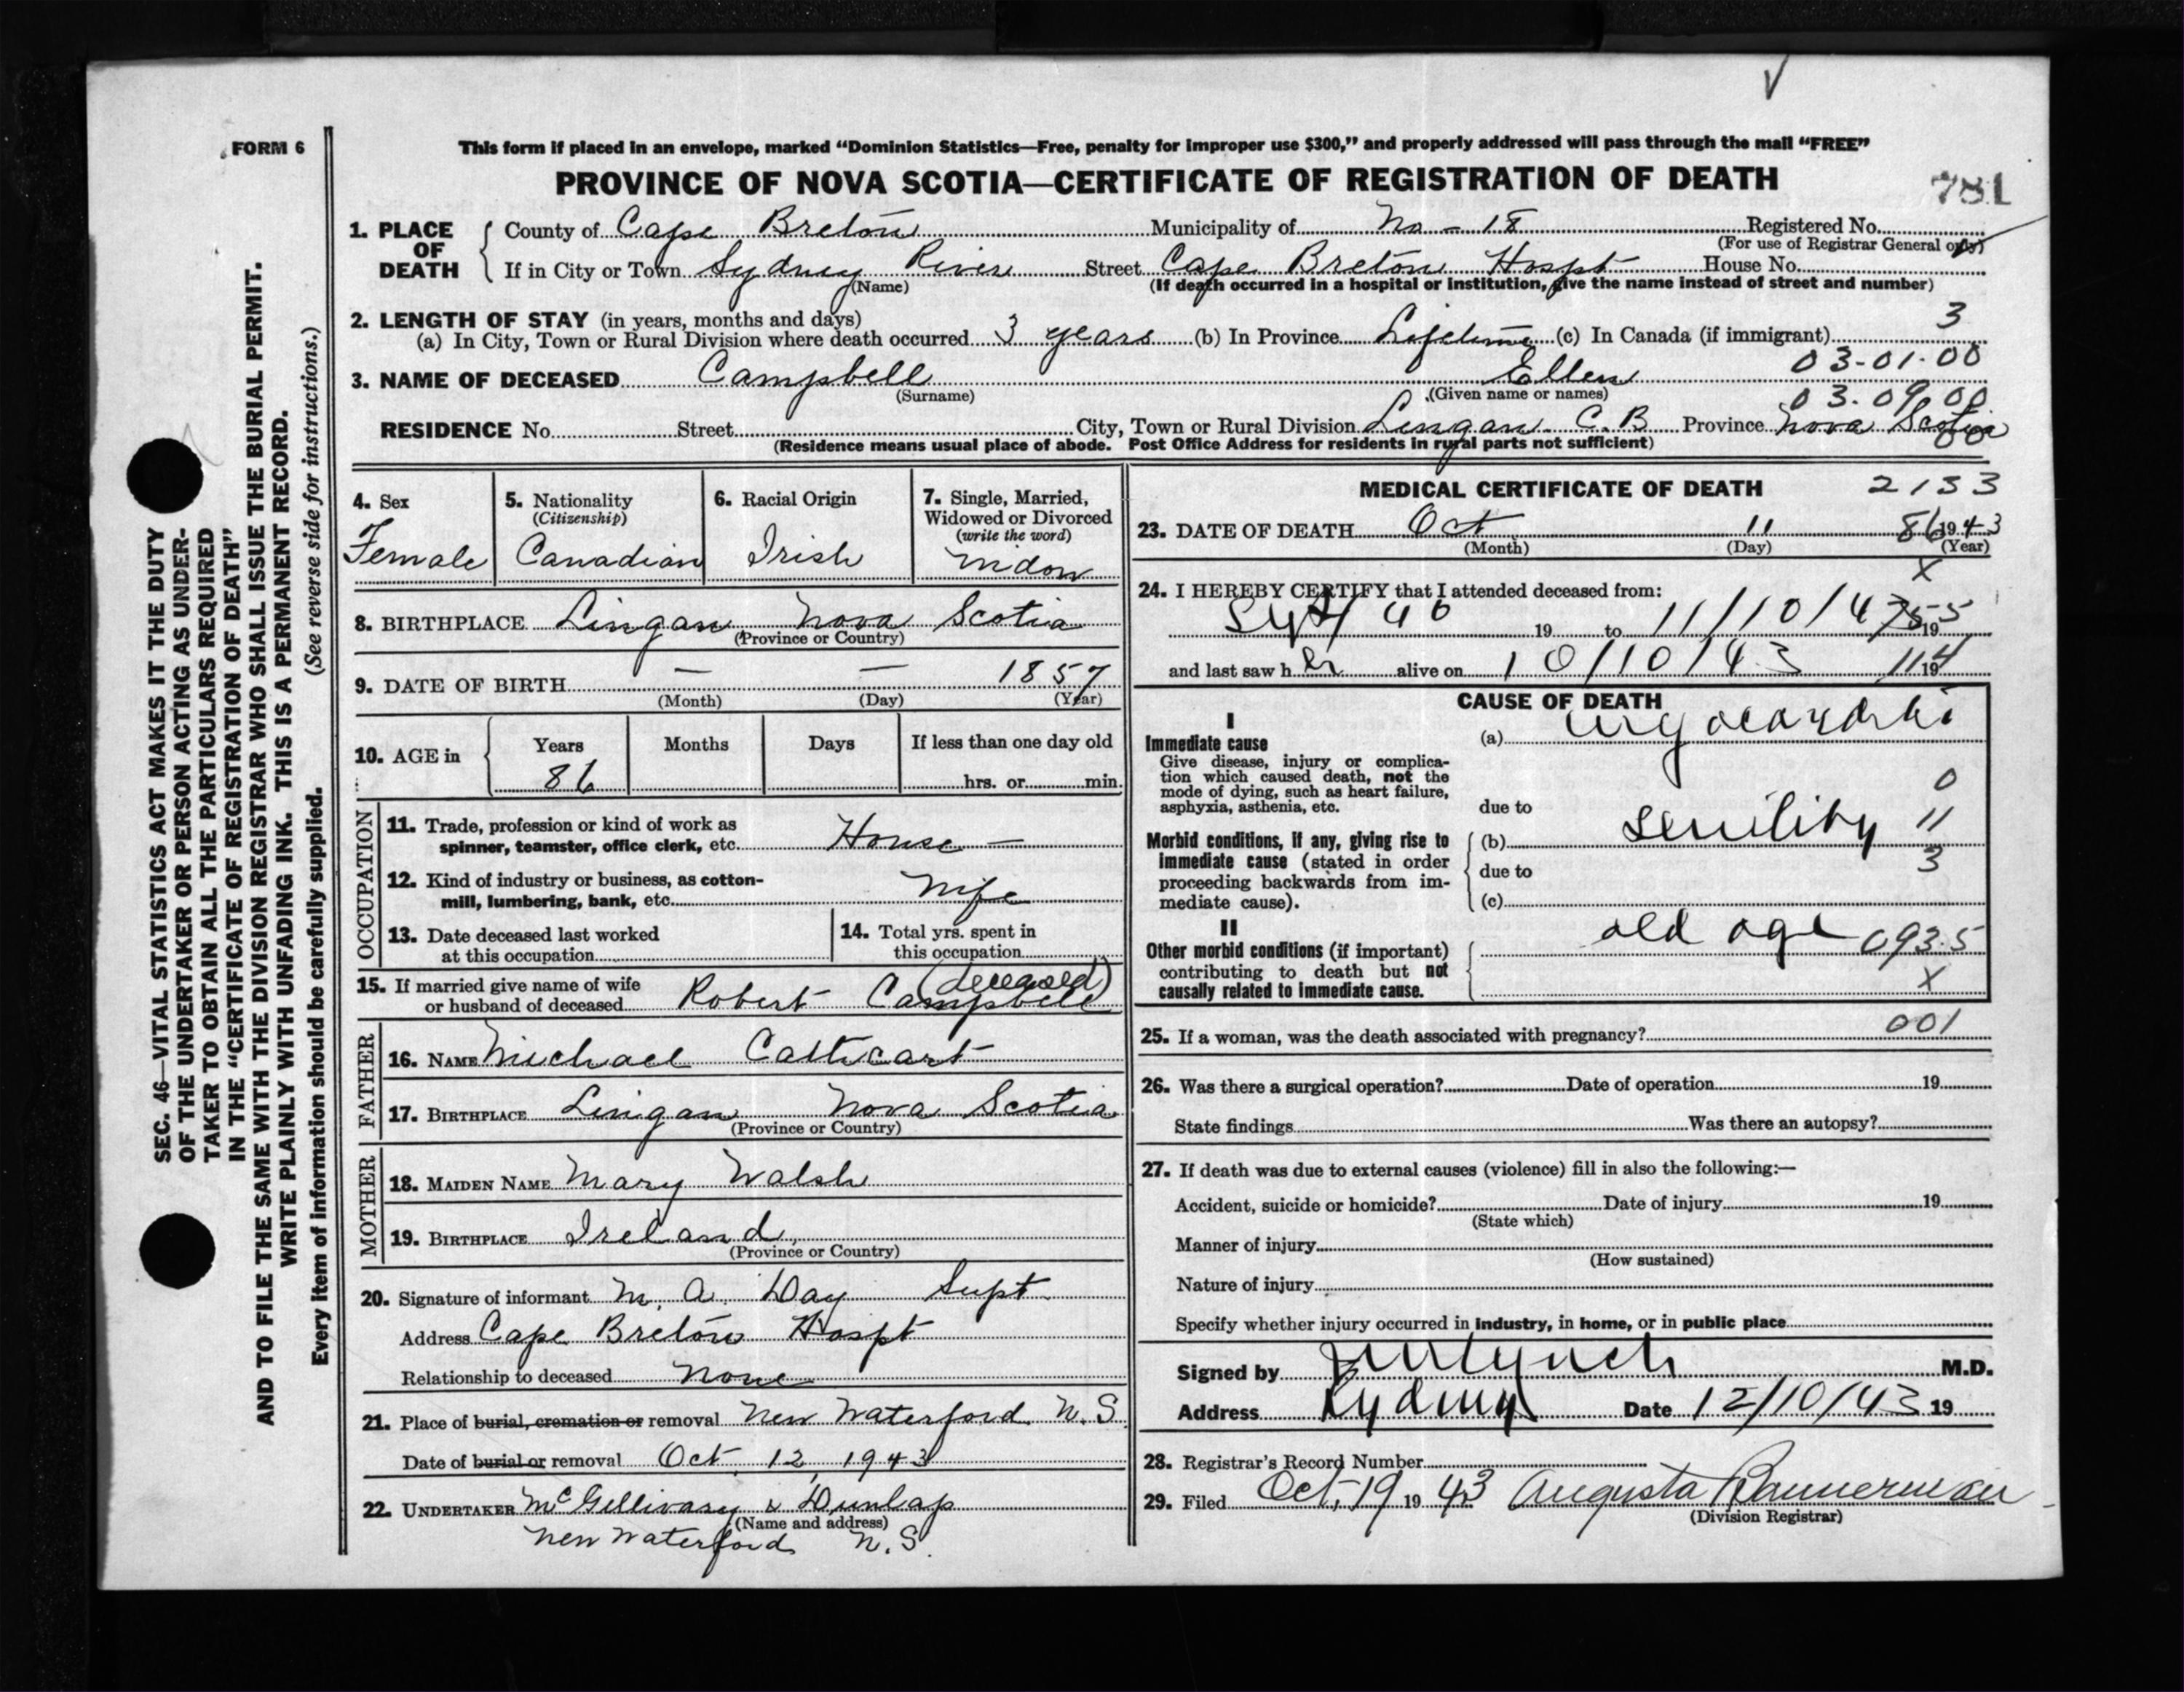 FORM 6
This form if placed in an envelope, marked “Dominion Statistics—Free, penalty for improper use $300,” and properly addressed will pass through the mail “FREE”
PROVINCE OF NOVA SCOTIA—CERTIFICATE OF REGISTRATION OF DEATH
781
1. PLACE OF DEATH
County of Cape Breton Municipality of No - 18 Registered No.
(For use of Registrar General only)
If in City or Town Sydney River Street Cape Breton Hospt House No.
(Name) (If death occurred in a hospital or institution, give the name instead of street and number)
2. LENGTH OF STAY (in years, months and days) 3
(a) In City, Town or Rural Division where death occurred 3 years (b) In Province Lifetime (c) In Canada (if immigrant)
03-01-00
3. NAME OF DECEASED Campbell Ellen
(Surname) (Given name or names) 03-09.00
RESIDENCE No. Street City, Town or Rural Division Lingan C. B Province Nova Scotia
(Residence means usual place of abode. Post Office Address for residents in rural parts not sufficient) 00
4. Sex
Female
5. Nationality
(Citizenship)
Canadian
6. Racial Origin
Irish
7. Single, Married,
Widowed or Divorced
(write the word)
Widow
8. BIRTHPLACE Lingan Nova Scotia
(Province or Country)
9. DATE OF BIRTH — — 1857
(Month) (Day) (Year)
10. AGE in Years Months Days If less than one day old
86 hrs. or min.
OCCUPATION
11. Trade, profession or kind of work as
spinner, teamster, office clerk, etc. House —
12. Kind of industry or business, as cotton-
mill, lumbering, bank, etc. Wife
13. Date deceased last worked
at this occupation
14. Total yrs. spent in
this occupation
15. If married give name of wife (deceased)
or husband of deceased Robert Campbell
FATHER
16. NAME Michael Cathcart
17. BIRTHPLACE Lingan Nova Scotia
(Province or Country)
MOTHER
18. MAIDEN NAME Mary Walsh
19. BIRTHPLACE Ireland
(Province or Country)
20. Signature of informant M. A. Day Supt.
Address Cape Breton Hospt
Relationship to deceased None
21. Place of burial, cremation or removal New Waterford N. S
Date of burial or removal Oct 12, 1943
22. UNDERTAKER McGillivary & Dunlap
(Name and address)
New Waterford N. S.
MEDICAL CERTIFICATE OF DEATH 2133
23. DATE OF DEATH Oct 11 86 1943
(Month) (Day) (Year)
x
24. I HEREBY CERTIFY that I attended deceased from:
Sept 40 19 to 11/10/43 19
55
and last saw her alive on 10/10/43 19
114
CAUSE OF DEATH
I
Immediate cause
Give disease, injury or complica-
tion which caused death, not the
mode of dying, such as heart failure,
asphyxia, asthenia, etc.
(a)
0
due to
Morbid conditions, if any, giving rise to
immediate cause (stated in order
proceeding backwards from im-
mediate cause).
(b) senility 11
due to 3
(c)
II
Other morbid conditions (if important)
contributing to death but not
causally related to immediate cause.
old age 093.5
x
25. If a woman, was the death associated with pregnancy? 001
26. Was there a surgical operation? Date of operation 19
State findings Was there an autopsy?
27. If death was due to external causes (violence) fill in also the following:—
Accident, suicide or homicide? Date of injury 19
(State which)
Manner of injury
(How sustained)
Nature of injury
Specify whether injury occurred in industry, in home, or in public place
Signed by Lynch M.D.
Address Sydney Date 12/10/43 19
28. Registrar's Record Number
29. Filed Oct. 19 1943 Augusta Bannerman
(Division Registrar)
SEC. 46—VITAL STATISTICS ACT MAKES IT THE DUTY
OF THE UNDERTAKER OR PERSON ACTING AS UNDER-
TAKER TO OBTAIN ALL THE PARTICULARS REQUIRED
IN THE “CERTIFICATE OF REGISTRATION OF DEATH”
AND TO FILE THE SAME WITH THE DIVISION REGISTRAR WHO SHALL ISSUE THE BURIAL PERMIT.
WRITE PLAINLY WITH UNFADING INK. THIS IS A PERMANENT RECORD.
(See reverse side for instructions.)
Every item of information should be carefully supplied.